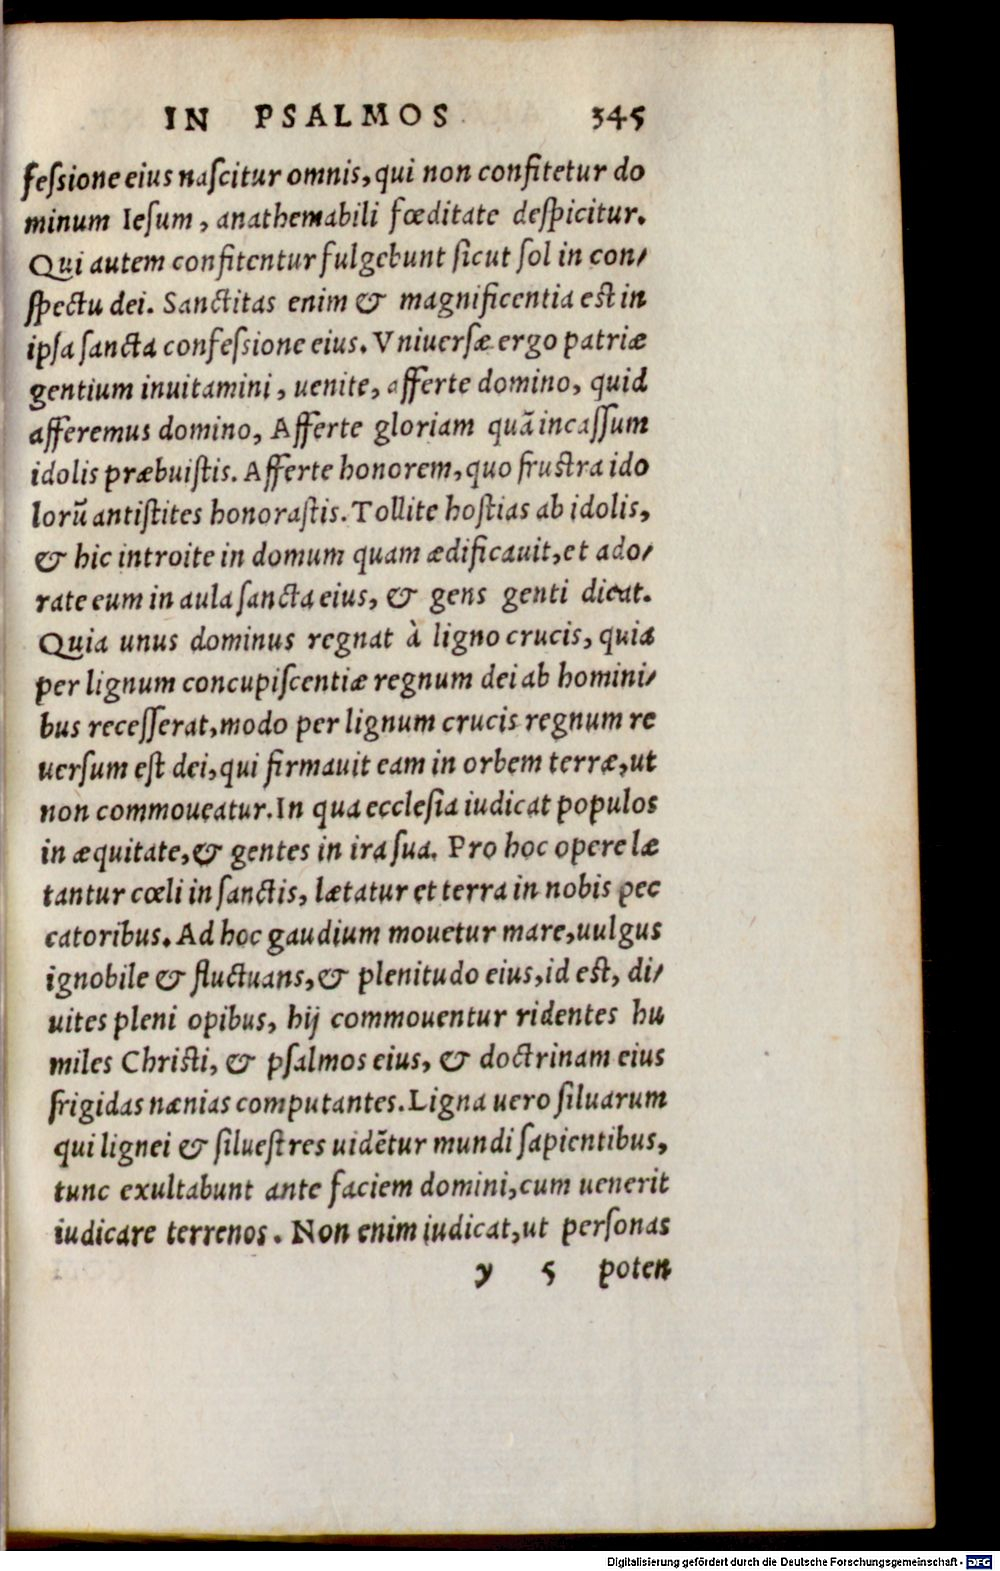 IN PSALMOS 345
feſsione eius naſcitur omnis, qui non confitetur do
minum Ieſum, anathemabili fœditate deſpicitur.
Qui autem confitentur fulgebunt ſicut ſol in con/
ſpectu dei. Sanctitas enim & magnificentia est in
ipſa ſancta confeſsione eius. Vniuerſæ ergo patriæ
gentium inuitamini, uenite, afferte domino, quid
afferemus domino, Afferte gloriam quā incaſſum
idolis præbuiſtis. Afferte honorem, quo fruſtra ido
lorū antiſtites honoraſtis. Tollite hoſtias ab idolis,
& hic introite in domum quam ædificauit, et ado/
rate eum in aula ſancta eius, & gens genti dicat.
Quia unus dominus regnat à ligno crucis, quia
per lignum concupiſcentiæ regnum dei ab homini/
bus receſſerat, modo per lignum crucis regnum re
uerſum eſt dei, qui firmauit eam in orbem terræ, ut
non commoueatur. In qua eccleſia iudicat populos
in æquitate, & gentes in ira ſua. Pro hoc opere læ
tantur cœli in ſanctis, lætatur et terra in nobis pec
catoribus. Ad hoc gaudium mouetur mare, uulgus
ignobile & fluctuans, & plenitudo eius, id est, di/
uites pleni opibus, hij commouentur ridentes hu
miles Chriſti, & pſalmos eius, & doctrinam eius
frigidas nænias computantes. Ligna uero ſiluarum
qui lignei & ſilueſtres uidētur mundi ſapientibus,
tunc exultabunt ante faciem domini, cum uenerit
iudicare terrenos. Non enim iudicat, ut perſonas
y 5 poten
Digitalisierung gefördert durch die Deutsche Forschungsgemeinschaft - DFG